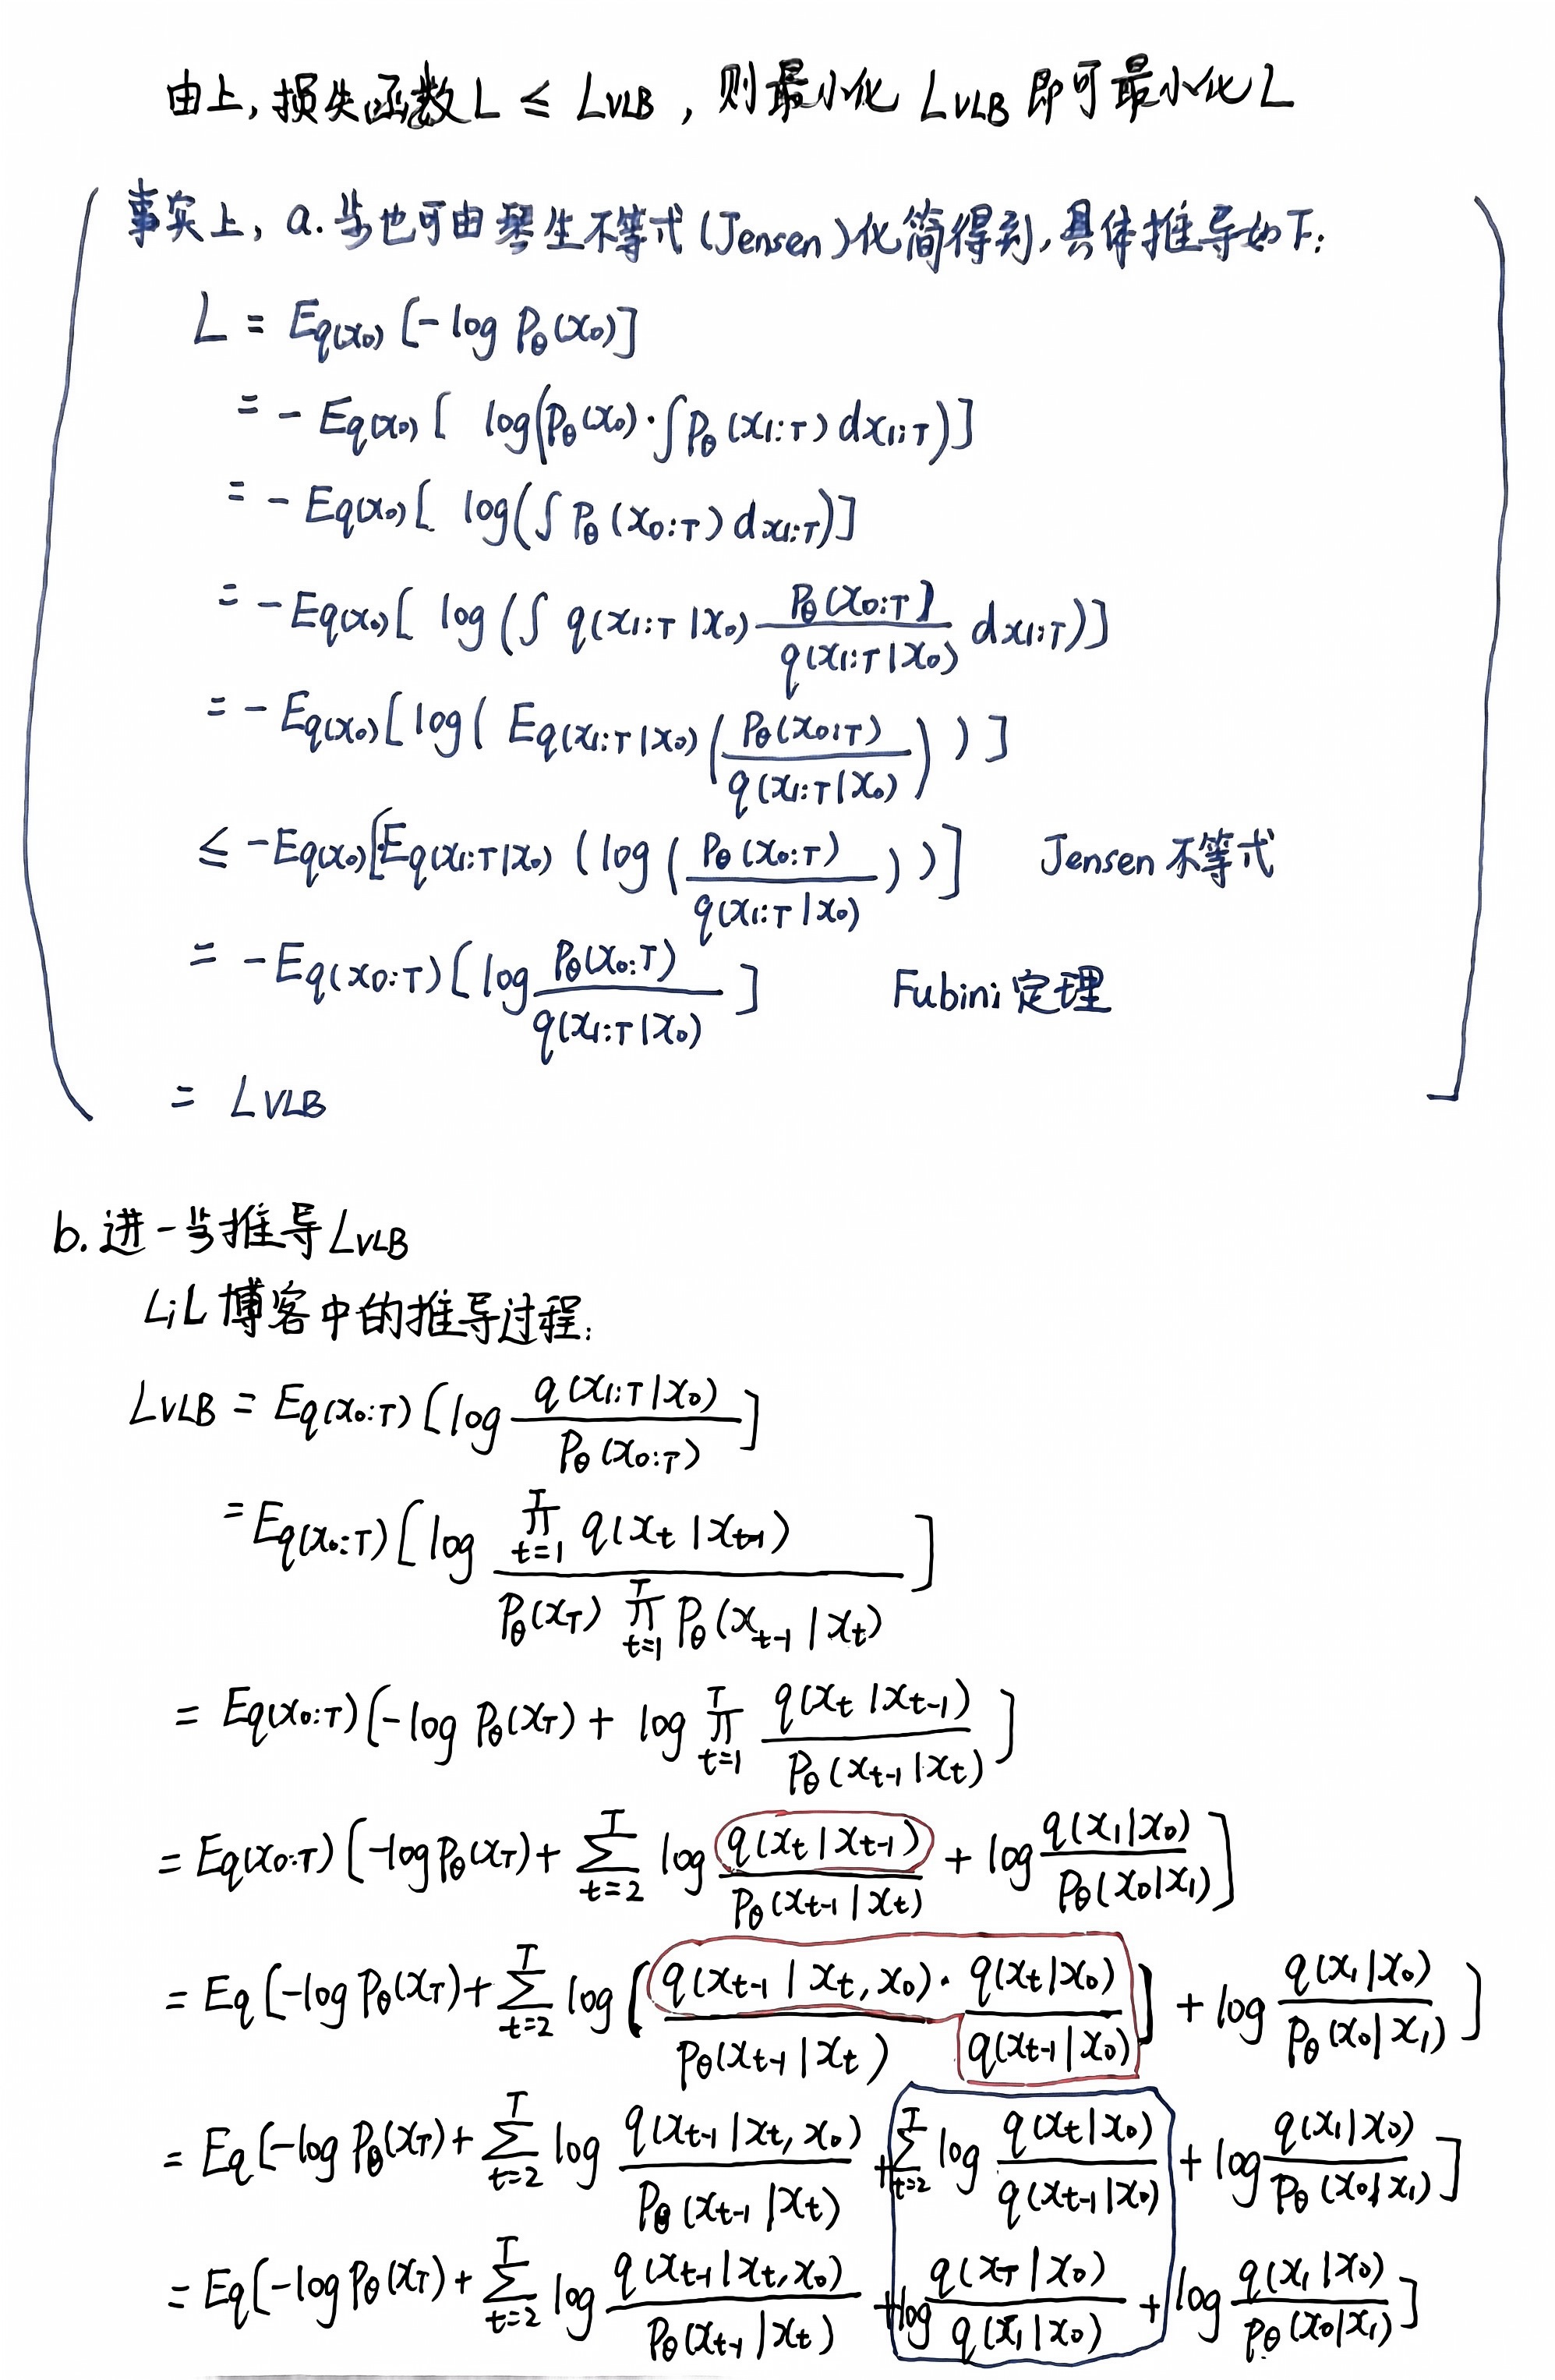 由上, 损失函数 L ≤ L_VLB , 则最小化 L_VLB 即可最小化 L
事实上, a. 步也可由琴生不等式 (Jensen) 化简得到, 具体推导如下:
L = E_{q(x_0)} [-log P_θ(x_0)]
= - E_{q(x_0)} [ log(P_θ(x_0)·∫P_θ(x_{1:T}) dx_{1:T})]
= - E_{q(x_0)} [ log(∫ P_θ(x_{0:T}) dx_{1:T})]
= - E_{q(x_0)} [ log (∫ q(x_{1:T}|x_0) \frac{P_θ(x_{0:T})}{q(x_{1:T}|x_0)} dx_{1:T})]
= - E_{q(x_0)} [log( E_{q(x_{1:T}|x_0)} (\frac{P_θ(x_{0:T})}{q(x_{1:T}|x_0)}) ) ]
≤ - E_{q(x_0)} [E_{q(x_{1:T}|x_0)} (log (\frac{P_θ(x_{0:T})}{q(x_{1:T}|x_0)}) )] Jensen 不等式
= - E_{q(x_{0:T})} [log \frac{P_θ(x_{0:T})}{q(x_{1:T}|x_0)} ] Fubini 定理
= L_VLB
b. 进一步推导 L_VLB
LiL 博客中的推导过程:
L_VLB = E_{q(x_{0:T})} [log \frac{q(x_{1:T}|x_0)}{P_θ(x_{0:T})}]
= E_{q(x_{0:T})} [log \frac{∏_{t=1}^{T} q(x_t|x_{t-1})}{P_θ(x_T) ∏_{t=1}^{T} P_θ(x_{t-1}|x_t)} ]
= E_{q(x_{0:T})} [-log P_θ(x_T) + log ∏_{t=1}^{T} \frac{q(x_t|x_{t-1})}{P_θ(x_{t-1}|x_t)} ]
= E_{q(x_{0:T})} [-log P_θ(x_T) + ∑_{t=2}^{T} log \frac{q(x_t|x_{t-1})}{P_θ(x_{t-1}|x_t)} + log \frac{q(x_1|x_0)}{P_θ(x_0|x_1)} ]
= E_q [-log P_θ(x_T) + ∑_{t=2}^{T} log (\frac{q(x_{t-1}|x_t, x_0)}{P_θ(x_{t-1}|x_t)} · \frac{q(x_t|x_0)}{q(x_{t-1}|x_0)}) + log \frac{q(x_1|x_0)}{P_θ(x_0|x_1)} ]
= E_q [-log P_θ(x_T) + ∑_{t=2}^{T} log \frac{q(x_{t-1}|x_t, x_0)}{P_θ(x_{t-1}|x_t)} + ∑_{t=2}^{T} log \frac{q(x_t|x_0)}{q(x_{t-1}|x_0)} + log \frac{q(x_1|x_0)}{P_θ(x_0|x_1)} ]
= E_q [-log P_θ(x_T) + ∑_{t=2}^{T} log \frac{q(x_{t-1}|x_t, x_0)}{P_θ(x_{t-1}|x_t)} + log \frac{q(x_T|x_0)}{q(x_1|x_0)} + log \frac{q(x_1|x_0)}{P_θ(x_0|x_1)} ]